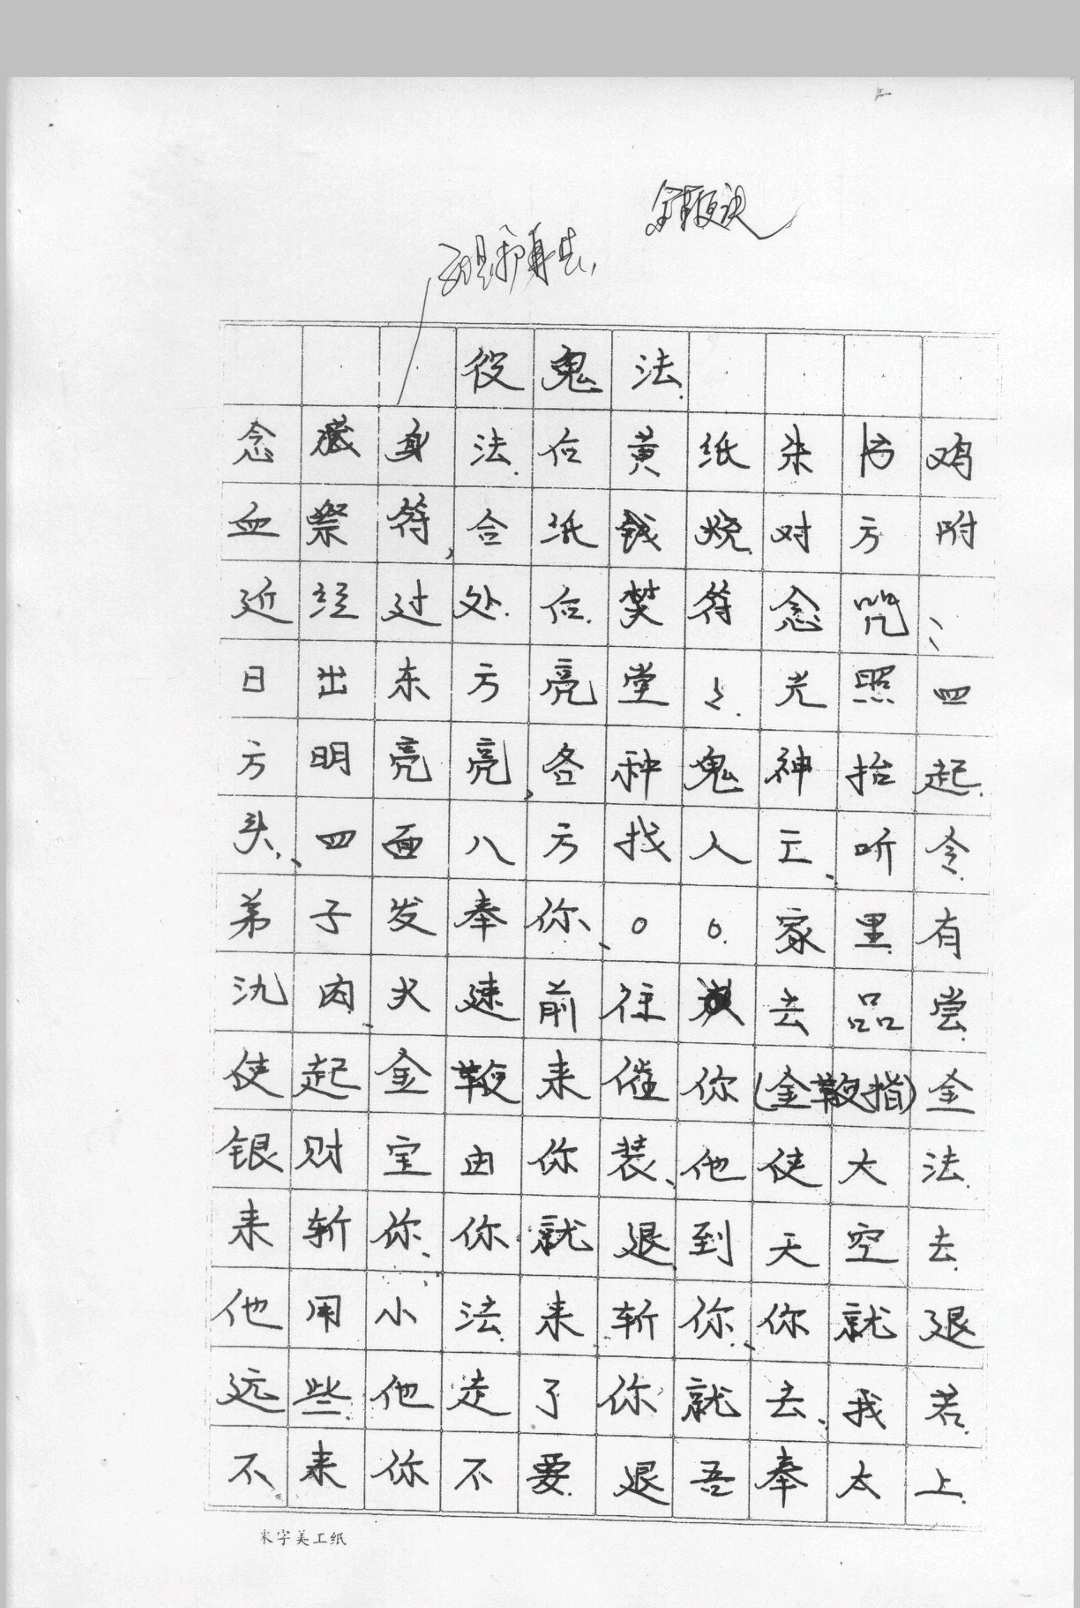 金鞭诀
役鬼法
念藏身法.后黄纸朱书鸡
血祭符,合纸钱烧.对方附
近经过处.后.焚符念咒:
日出东方亮堂〻.光照四
方、明亮亮,各种鬼神抬起.
头、四面八方找人王、听令.
弟子发奉你、○○.家里有
氿肉.火速前往 去品尝.
使起金鞭来催你(金鞭指)金
银财宝由你装、他使大法.
来斩你、你就退到天空去.
他用小法.来斩你、你就退
远些.他走了你就去、我若.
不来你不要.退吾奉太上.
米字美工纸